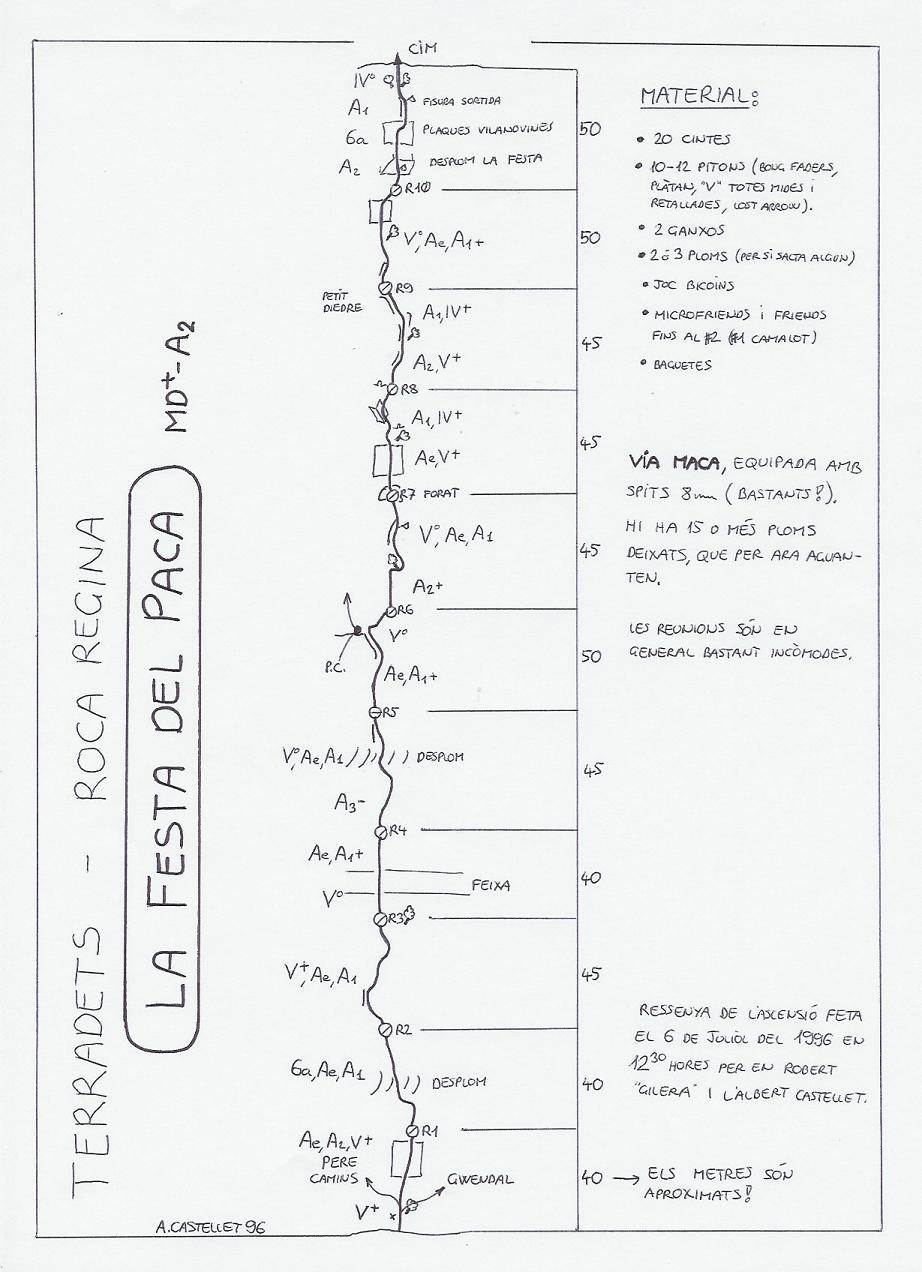 TERRADETS - ROCA REGINA
LA FESTA DEL PACA
MD+-A2
CIM
IV°
A1
FISURA SORTIDA
6a
PLAQUES VILANOVINES
50
A2
DESPLOM LA FESTA
R10
V°, Ae, A1+
50
R9
PETIT
DIEDRE
A1, IV+
45
A2, V+
R8
A1, IV+
45
Ae, V+
R7 FORAT
V°, Ae, A1
45
A2+
R6
V°
P.C.
50
Ae, A1+
R5
V°, Ae, A1
DESPLOM
45
A3-
R4
Ae, A1+
40
FEIXA
V°
R3
V+, Ae, A1
45
R2
6a, Ae, A1
DESPLOM
40
R1
Ae, A2, V+
PERE
CAMINS
GWENDAL
40 → ELS METRES SÓN
APROXIMATS!
V+
A. CASTELLET 96
MATERIAL:
• 20 CINTES
• 10-12 PITONS (BONG FADERS,
PLÀTAN, "V" TOTES MIDES I
RETALLADES, LOST ARROW).
• 2 GANXOS
• 2 ó 3 PLOMS (PER SI SALTA ALGUN)
• JOC BICOINS
• MICROFRIENDS I FRIENDS
FINS AL #2 (#1 CAMALOT)
• BAGUETES
VÍA MACA, EQUIPADA AMB
SPITS 8mm (BASTANTS!).
HI HA 15 O MÉS PLOMS
DEIXATS, QUE PER ARA AGUAN-
TEN.
LES REUNIONS SÓN EN
GENERAL BASTANT INCÒMODES.
RESSENYA DE L'ASCENSIÓ FETA
EL 6 DE JULIOL DEL 1996 EN
12³⁰ HORES PER EN ROBERT
"GILERA" I L'ALBERT CASTELLET.